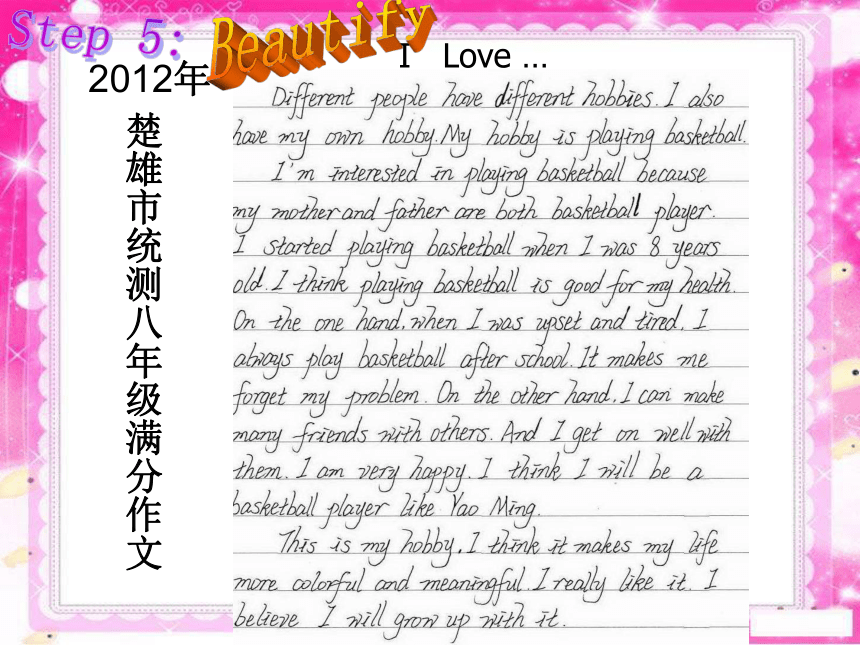 Step 5: Beautify
I Love …
2012年
楚雄市统测八年级满分作文
Different people have different hobbies. I also
have my own hobby. My hobby is playing basketball.
I'm interested in playing basketball because
my mother and father are both basketball player.
I started playing basketball when I was 8 years
old. I think playing basketball is good for my health.
On the one hand, when I was upset and tired, I
always play basketball after school. It makes me
forget my problem. On the other hand, I can make
many friends with others. And I get on well with
them. I am very happy. I think I will be a
basketball player like Yao Ming.
This is my hobby, I think it makes my life
more colorful and meaningful. I really like it. I
believe I will grow up with it.